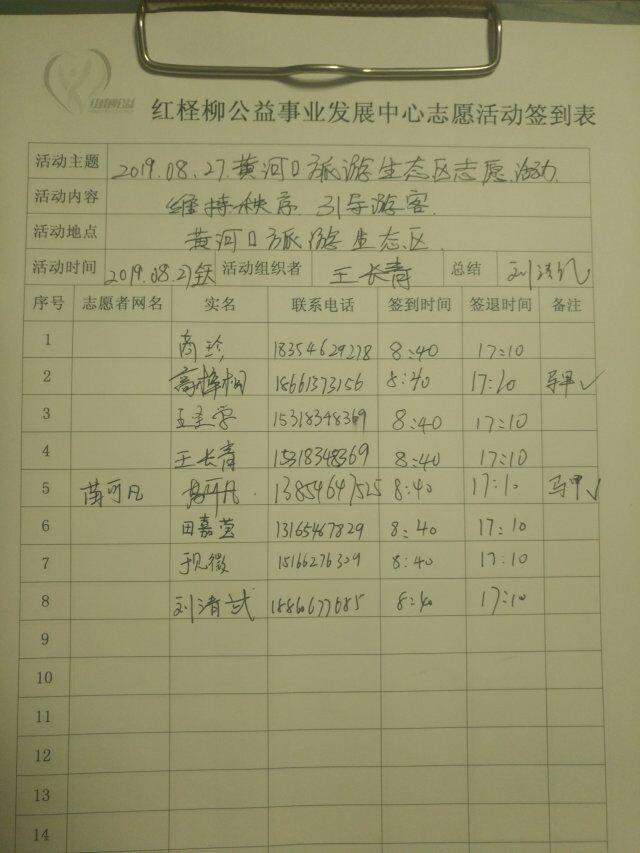 红柽柳公益事业发展中心志愿活动签到表
活动主题 2019.08.27.黄河口旅游生态区志愿活动.
活动内容 维持秩序 引导游客.
活动地点 黄河口旅游生态区.
活动时间 2019.08.27 活动组织者 王长青 总结
序号 志愿者网名 实名 联系电话 签到时间 签退时间 备注
1 商珍 18354629278 8:40 17:10
2 15661373156 8:40 17:10 马甲✓
3 15318348369 8:40 17:10
4 王长青 15318348369 8:40 17:10
5 苗可凡 13854647525 8:40 17:10 马甲✓
6 田嘉莹 13165467829 8:40 17:10
7 15166276309 8:40 17:10
8 刘清武 8:40 17:10
9
10
11
12
13
14